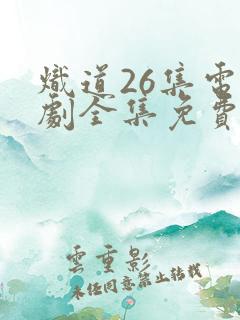 熾道26集電
劇全集免費
雲重影
未经同意禁止转载